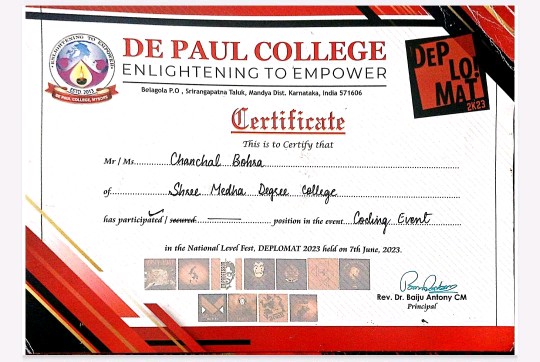 ENLIGHTENING TO EMPOWER
ESTD 2013
DE PAUL COLLEGE, MYSORE
DE PAUL COLLEGE
ENLIGHTENING TO EMPOWER
Belagola P.O , Srirangapatna Taluk, Mandya Dist. Karnataka, India 571606
DEP
LO!
MAT
2K23
Certificate
This is to Certify that
Mr / Ms. Chanchal Bohra
of Shree Medha Degree College
has participated / secured position in the event Coding Event
in the National Level Fest, DEPLOMAT 2023 held on 7th June, 2023.
Rev. Dr. Baiju Antony CM
Principal